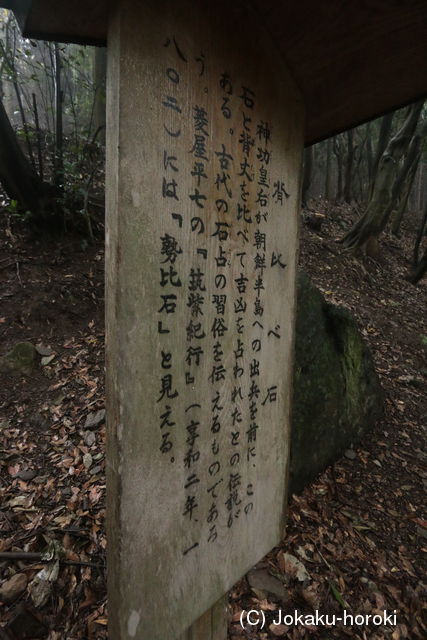 背比べ石
神功皇后が朝鮮半島への出兵を前に、この
石と背丈を比べて吉凶を占われたとの伝説が
ある。古代の石占の習俗を伝えるものであろ
う。菱屋平七の『筑紫紀行』（享和二年、一
八〇二）には「勢比石」と見える。
(C) Jokaku-horoki